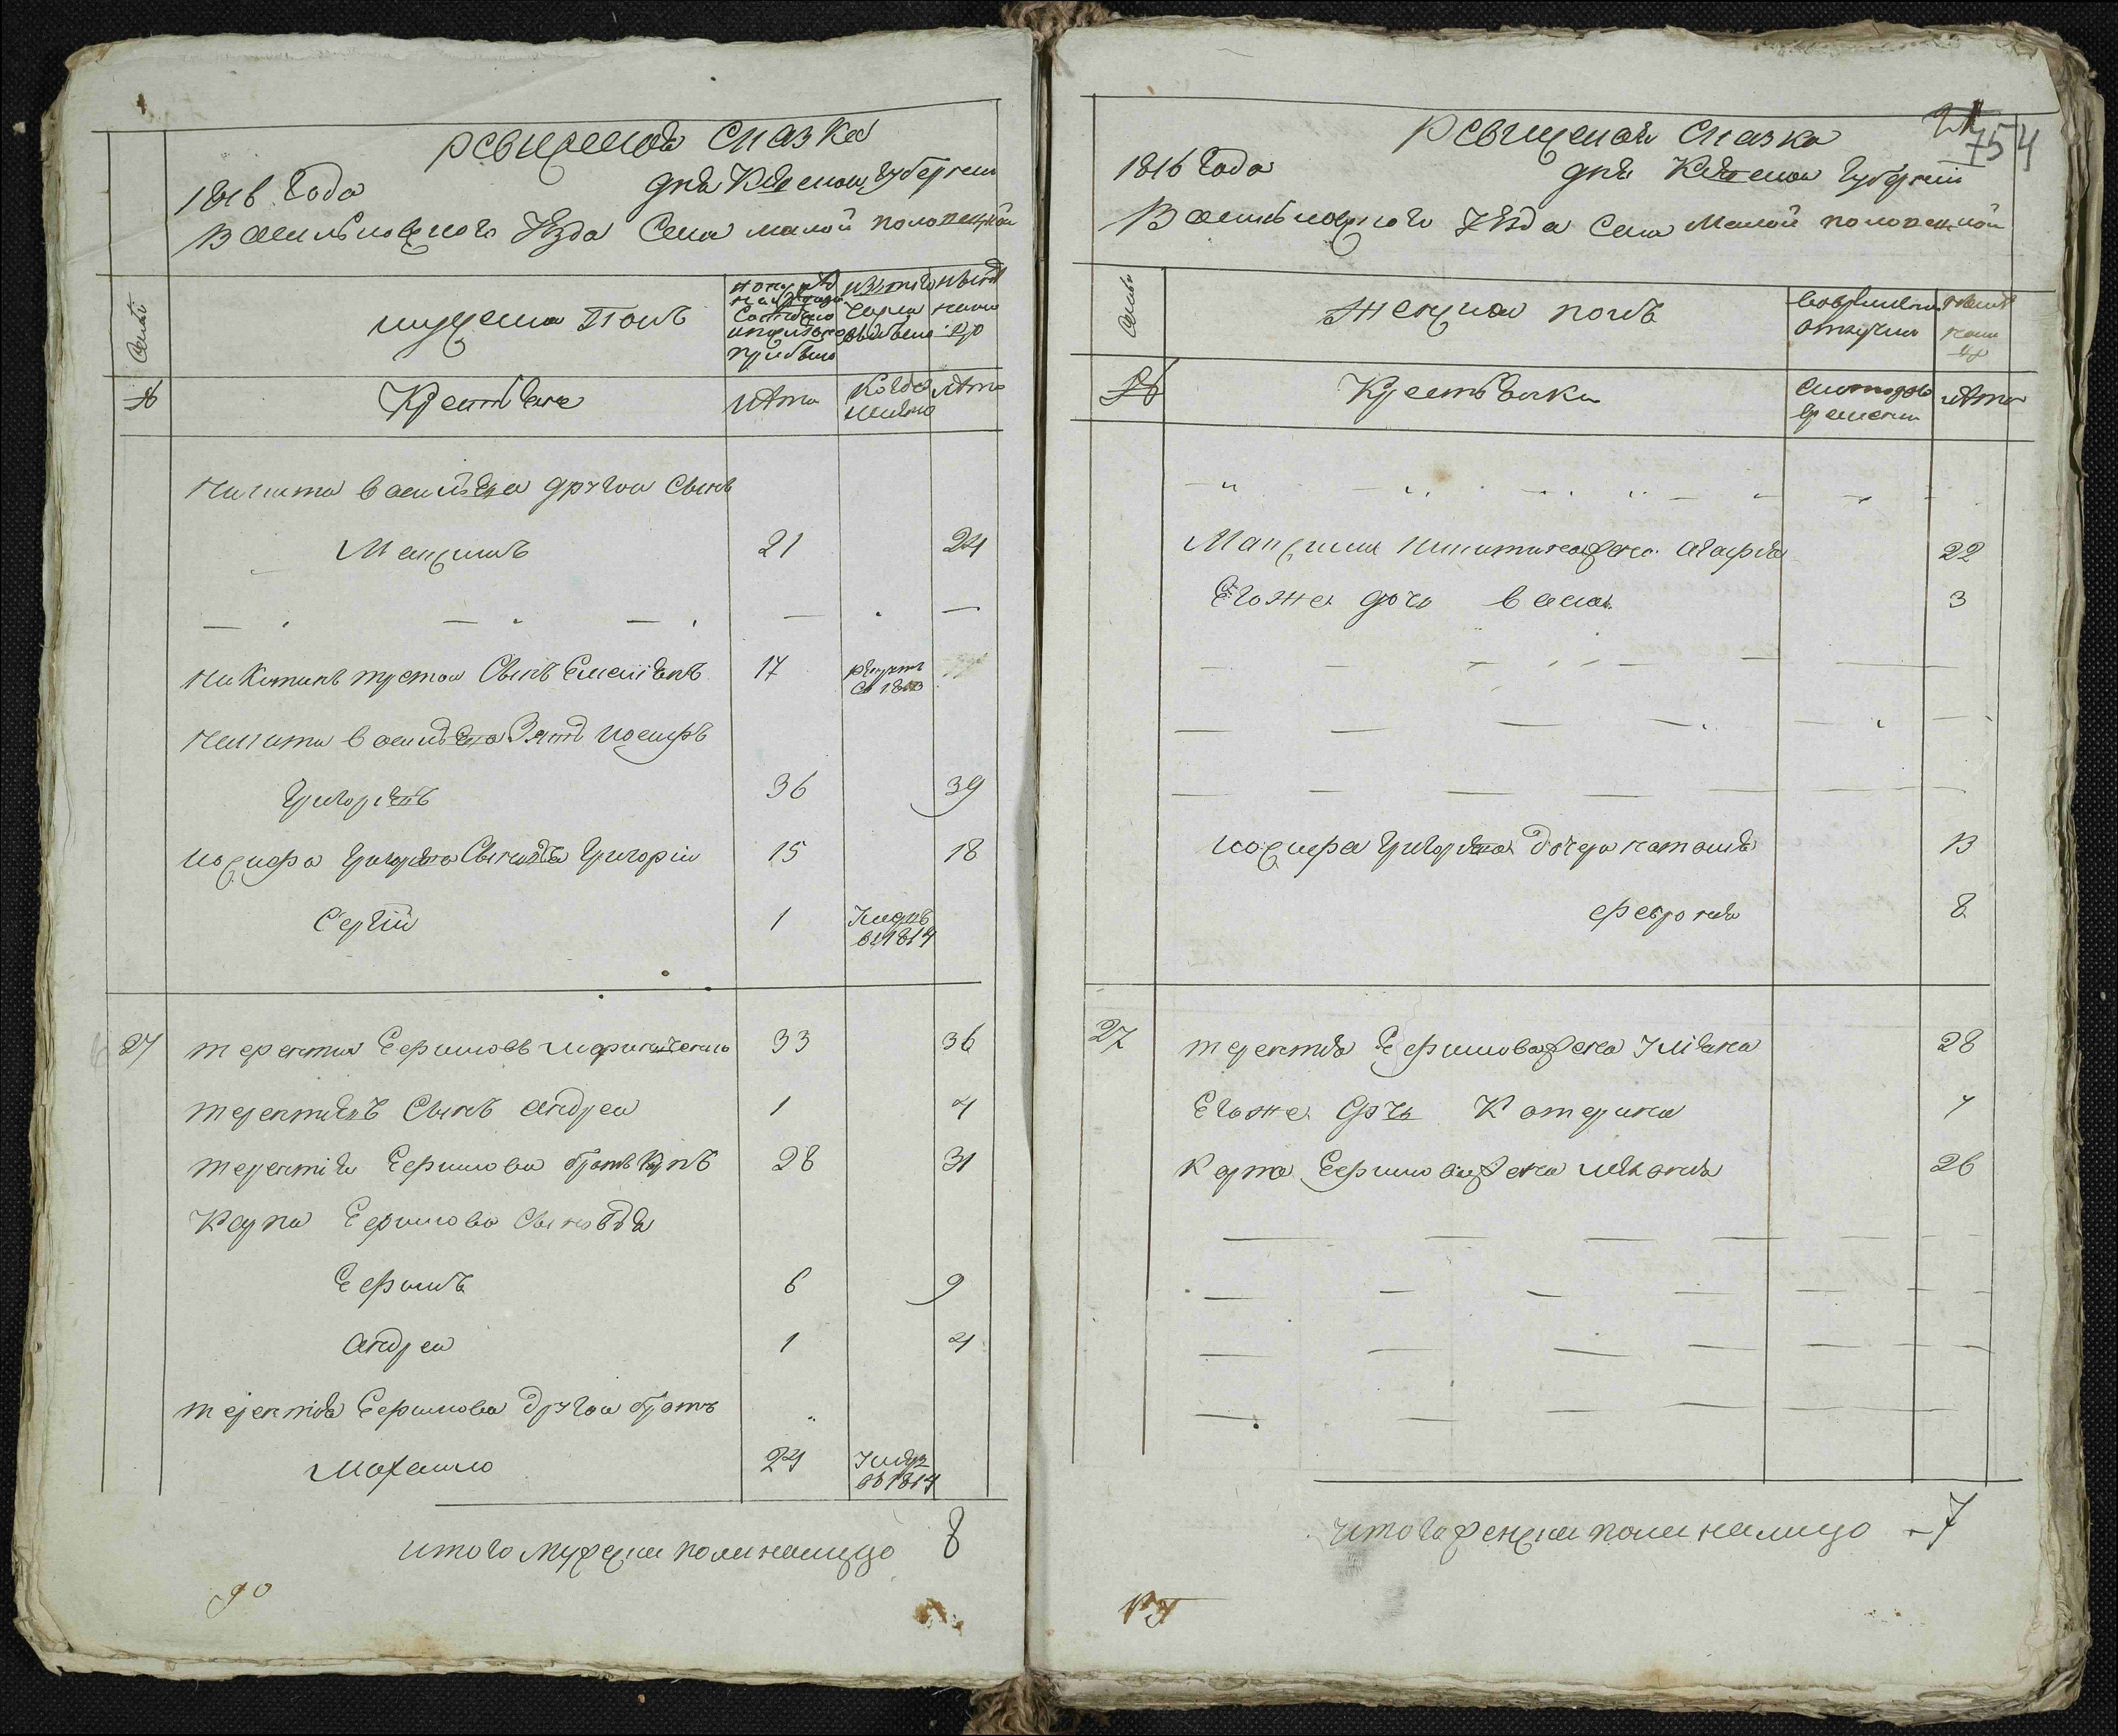 ревизская сказка
1816 года дня Киевской губернии
Васильковского уезда села малой половецкой
Семьи
мужеска полъ
по последней ревизии состояло и после того прибыло
изъ того числа выбыло
ныне на лицо
№
Крестьяне
лета
когда именно
лета
Никиты васильева другои Сынъ
Максимъ 21 24
— — — — —
Никитинъ третои Сынъ Емелiянъ 17 рекрутъ въ 1813
Никиты васильева Зять иосифъ
Григорьевъ 36 39
иосифа Григорьева Сыновья Григорiи 15 18
Сергiй 1 умеръ въ 1814
27 терентии Ефимовъ 33 36
терентиевъ Сынъ андреи 1 4
терентiя Ефимова братъ Карпъ 28 31
Карпа Ефимова Сыновья
Ефимъ 6 9
андреи 1 4
терентия Ефимова другои братъ
Михаило 24 умеръ въ 1814
итого мужеска пола налицо 8
90
21
754
ревизская Сказка
1816 года дня Киевской губернiи
Васильковского уезда села Малой половецкой
Семьи
Женска полъ
во временной отлучки
ныне на лицо
№
Крестьянки
съ которого времени
лета
— — — — —
Максима Никитина жена агафия 22
Егоже дочь 3
— — — — —
— — — — —
— — — — —
иосифа Григорьева дочери наталия 13
феврония 8
27 терентия Ефимова жена улiяна 28
Егоже дочь Катерина 7
карпа Ефимова жена мелания 26
— — — — —
— — — — —
— — — — —
— — — — —
итого женска пола налицо – 7